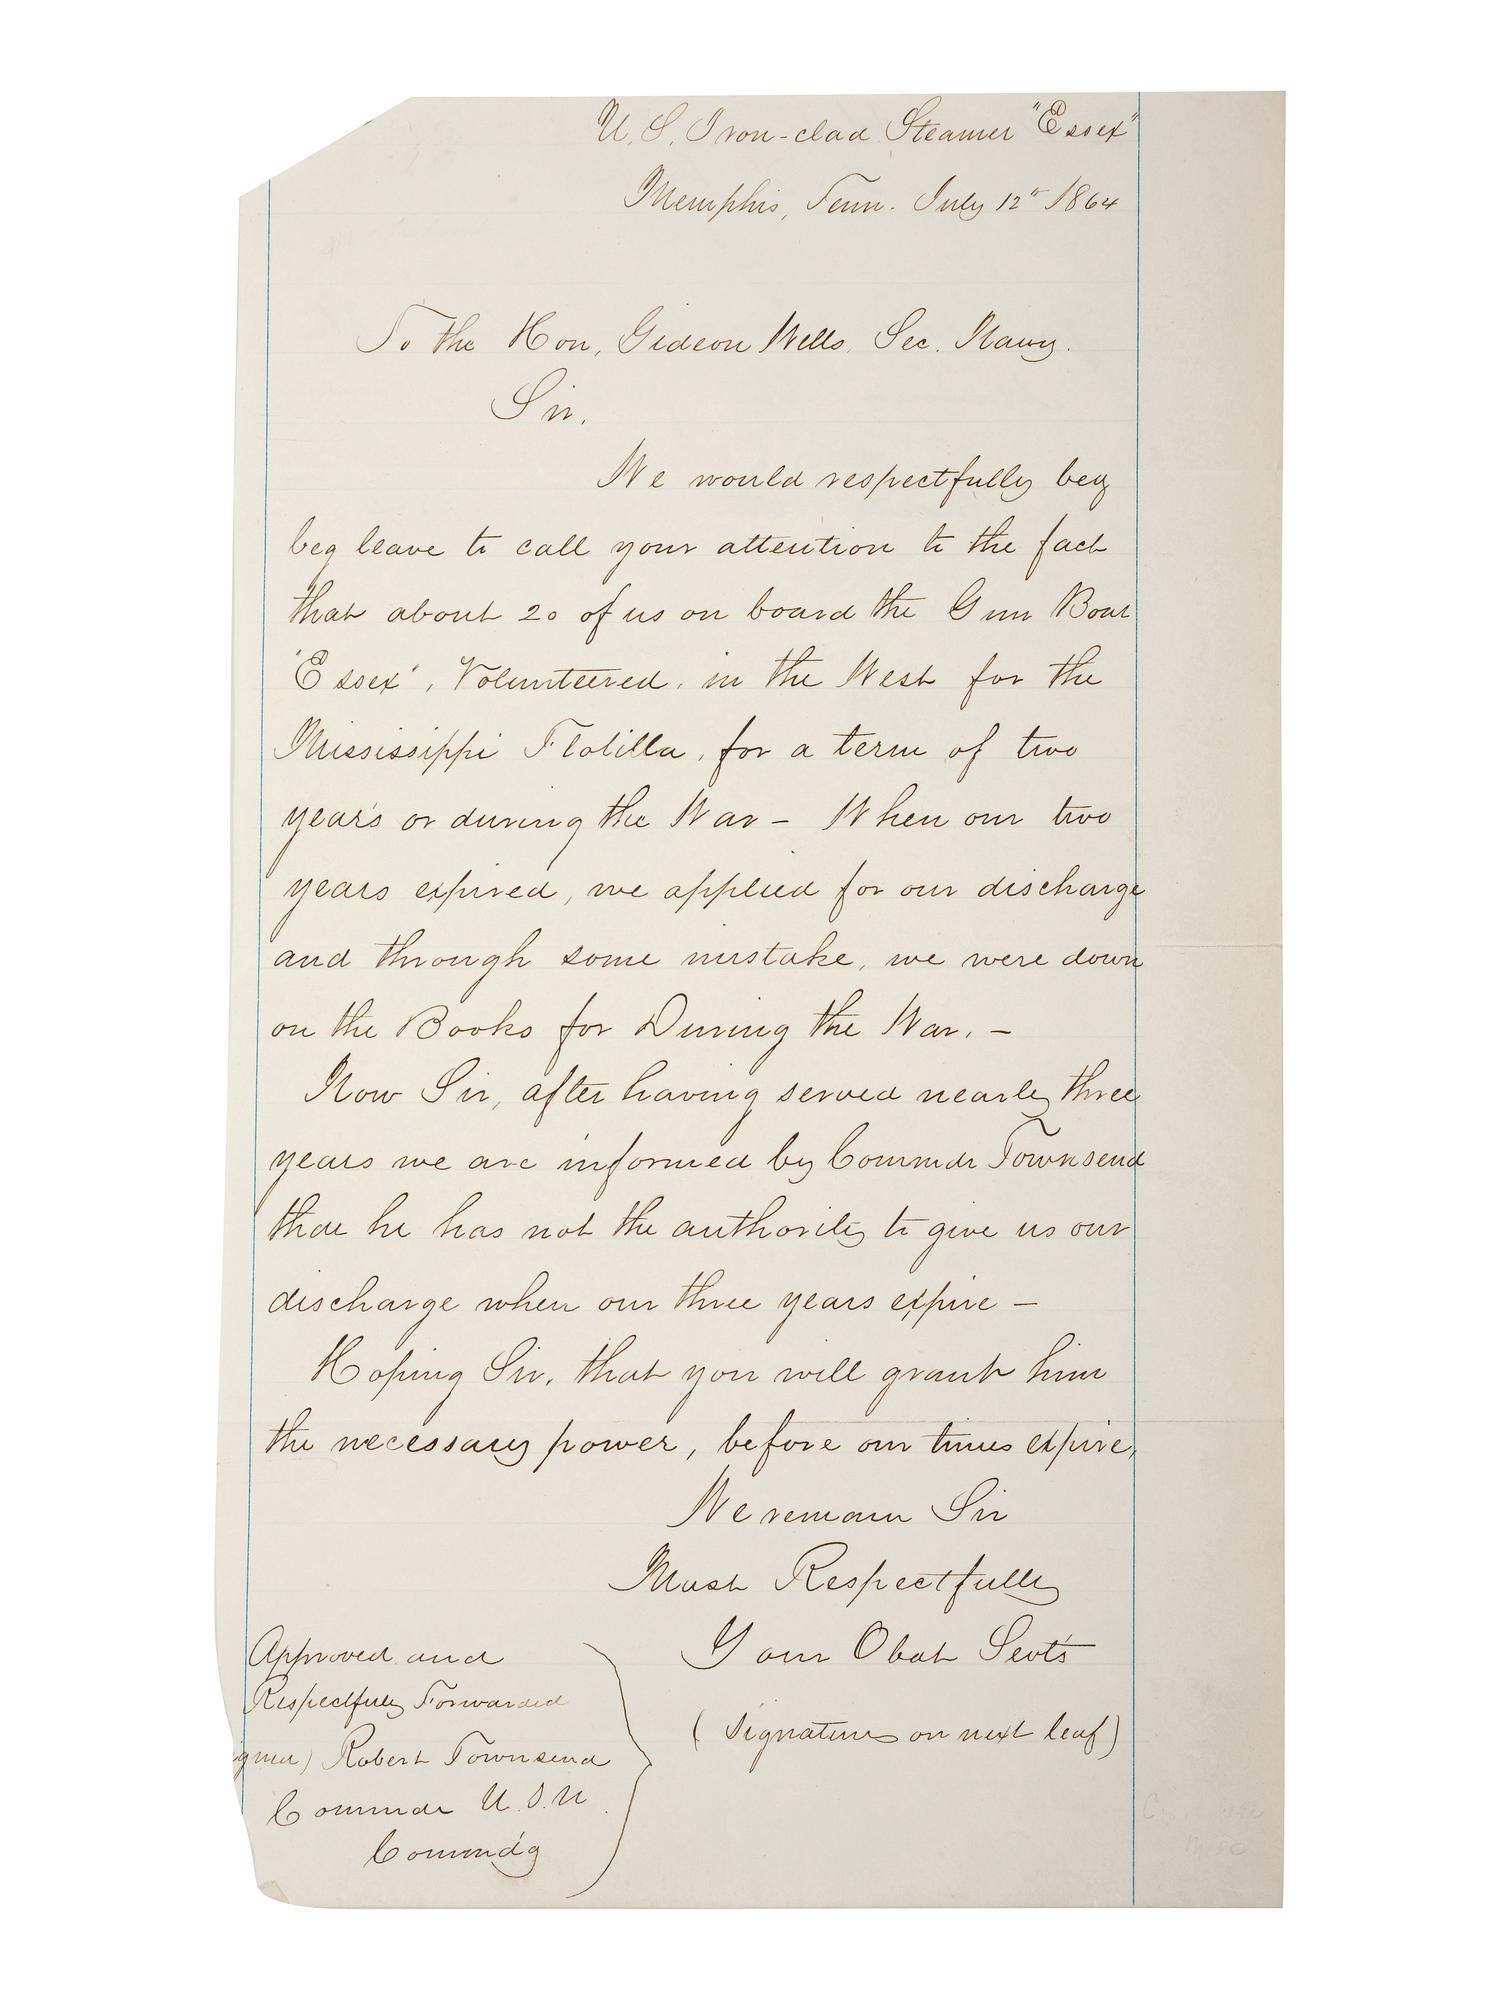 U. S. Iron-clad Steamer "Essex"
Memphis, Tenn. July 12" 1864
To the Hon, Gideon Wells, Sec. Navy.
Sir,
We would respectfully beg
beg leave to call your attention to the fact
that about 20 of us on board the Gun Boat
"Essex", Volunteered, in the West for the
Mississippi Flotilla, for a term of two
year's or during the War - When our two
years expired, we applied for our discharge
and through some mistake, we were down
on the Books for During the War. -
Now Sir, after having served nearly three
years we are informed by Commdr Townsend
that he has not the authority to give us our
discharge when our three years expire -
Hoping Sir, that you will grant him
the necessary power, before our times expire,
We remain Sir
Most Respectfully
Your Obdt Servts
(Signatures on next leaf)
Approved and
Respectfully Forwarded
Robert Townsend
Commdr U.S.N.
Commd'g